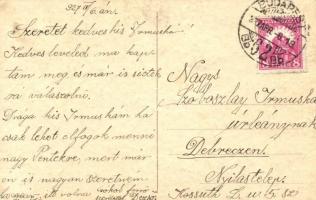 Szeretet kedves kis Irmuskám!
Kedves leveled ma kap
tam meg és már is sietek
rá válaszolni.
Drága kis Irmuskám ha
csak lehet elfogok menni
nagy Péntekre, mert már
én is nagyon szeretném
volna
Nagys.
Szoboszlay Irmuska
úrleánynak
Debreczen.
Nyilastelep.
Kossuth L. u. 5. sz.
BUDAPEST